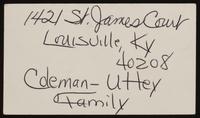 1421 St. James Court
Louisville, Ky
40208
Coleman-Uttey
Family